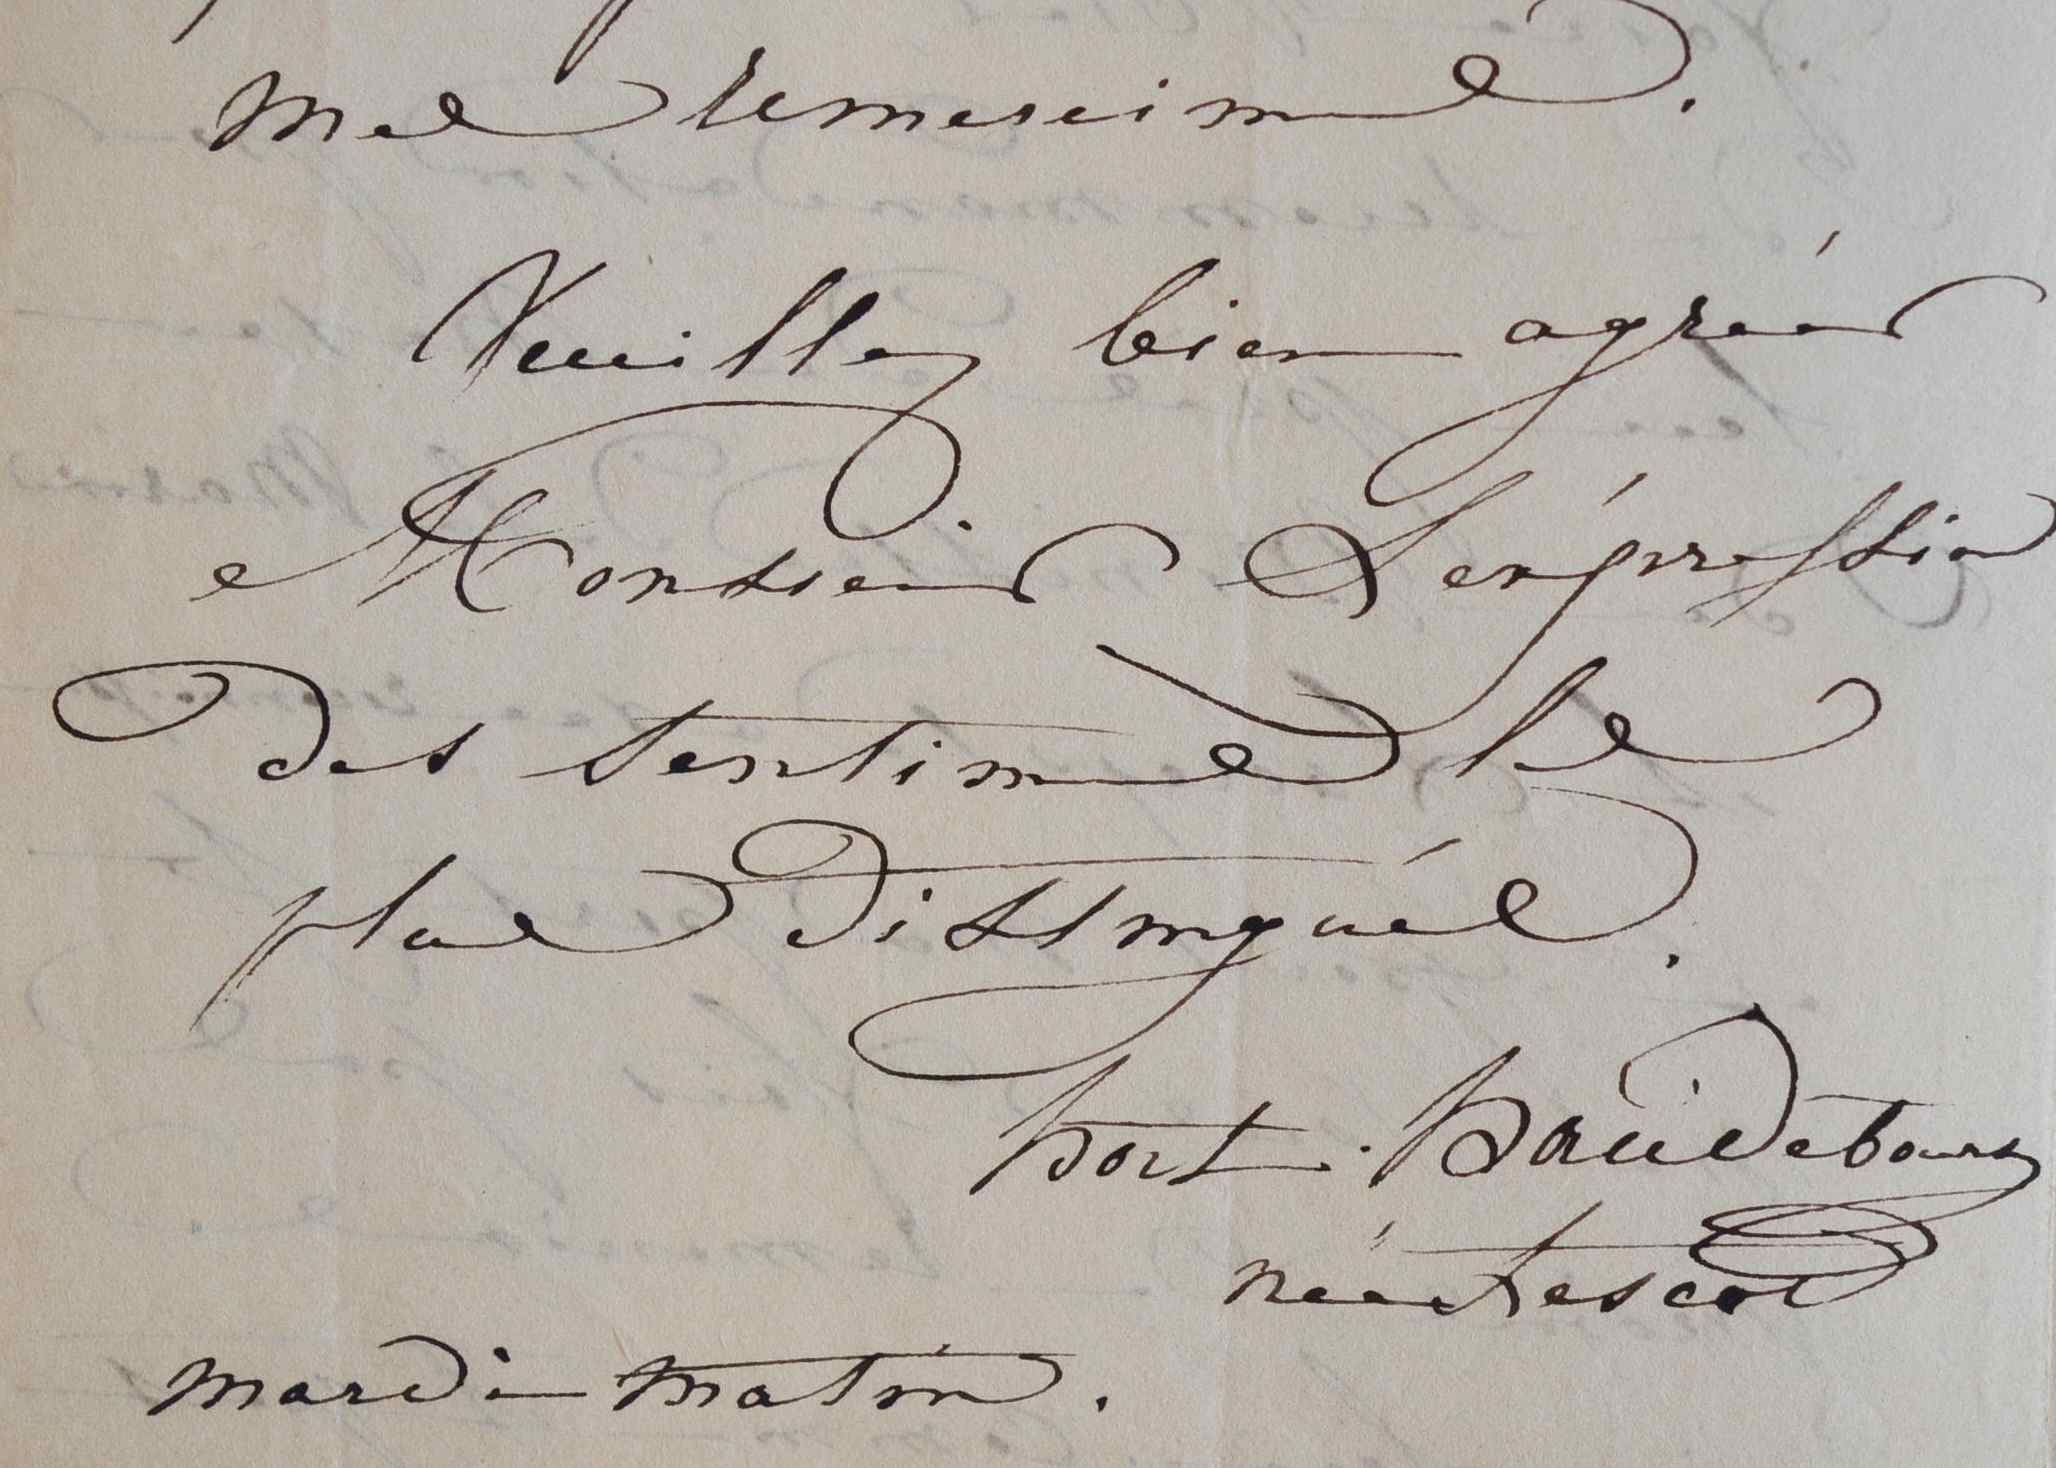 mes remercimens.
Veuillez bien agréer
Monsieur L'expression
des sentimens les
plus distingués.
hort. haudebourt
née Lescot
mardi matin.